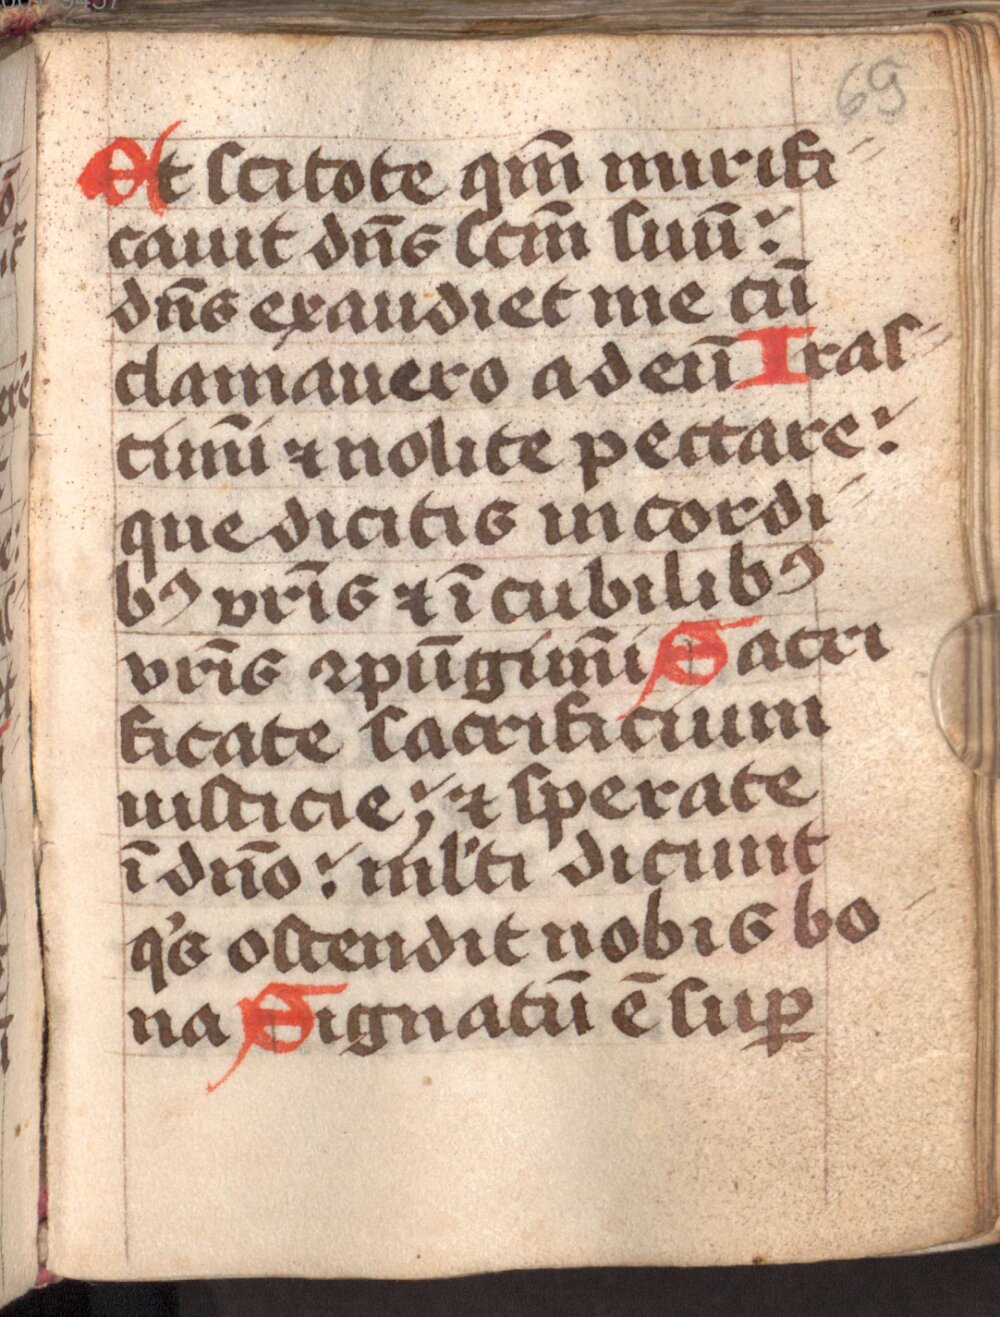 69
Et scitote qm̄ mirifi
cavit dn̄s scm̄ suū:
dn̄s exaudiet me cū
clamavero ad eū Iras
cimī ⁊ nolite peccare:
que dicitis in cordi
bꝰ vr̄is ⁊ ī cubilibꝰ
vr̄is ꝯpūgimī Sacri
ficate sacrificium
iusticie; ⁊ sperate
ī dn̄o: ml'ti dicunt
q's ostendit nobis bo
na Signatū ē suꝑ